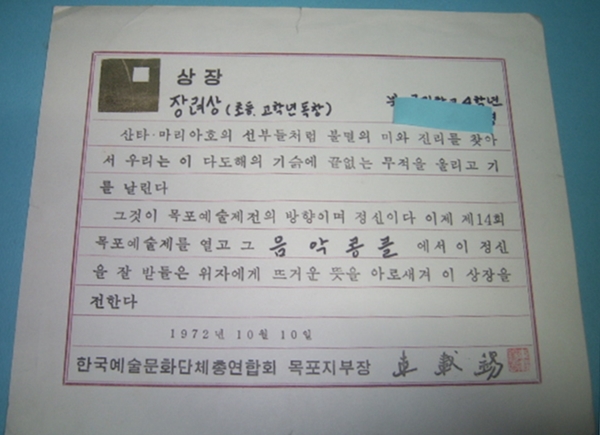 상장
장려상 (초등, 고학년독창)
4학년
산타·마리아호의 선부들처럼 불멸의 미와 진리를 찾아
서 우리는 이 다도해의 기슭에 끝없는 무적을 울리고 기
를 날린다
그것이 목포예술제전의 방향이며 정신이다 이제 제14회
목포예술제를 열고 그 음악콩클 에서 이 정신
을 잘 받들은 위자에게 뜨거운 뜻을 아로새겨 이 상장을
전한다
1972년 10월 10일
한국예술문화단체총연합회 목포지부장